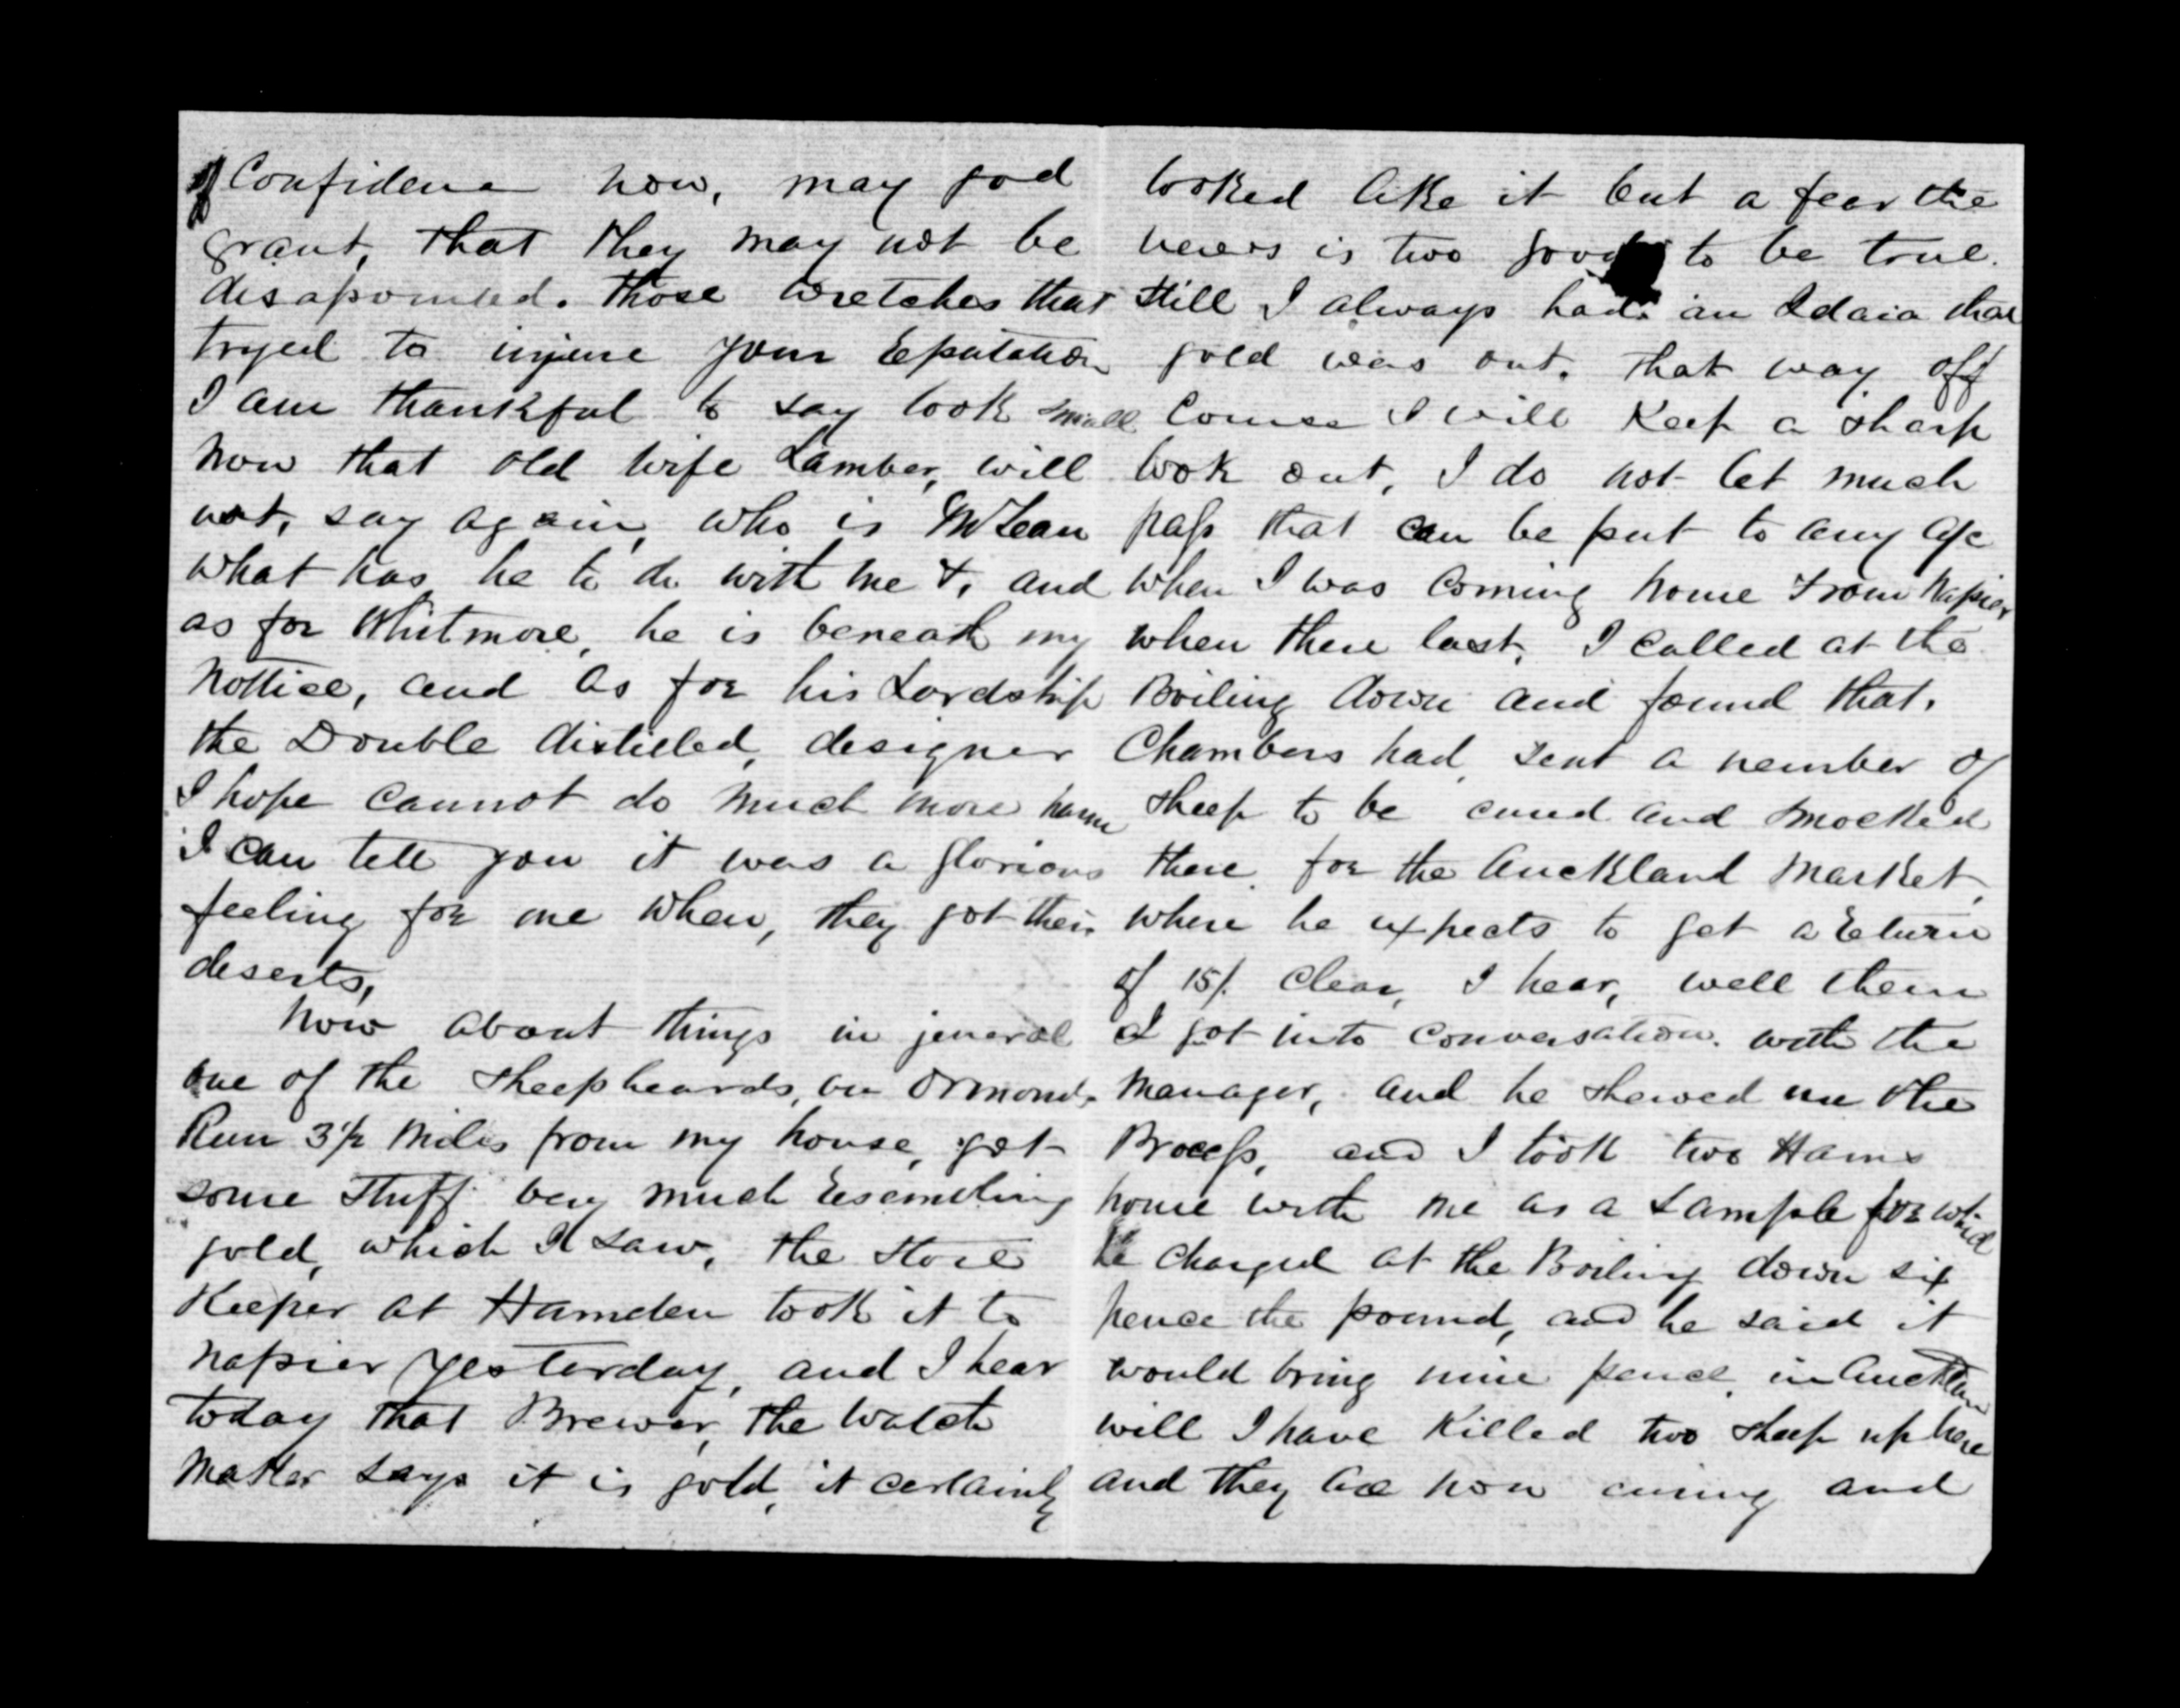 of Confidence now, may god
grant, that they may not be
disapointed. those wretches that
tryed to injure your Reputation
I am thankful to say look small
now that old wife Lamber, will
not, say again, who is McLean
what has he to do with me &, and
as for Whitmore, he is beneath my
nottice, and as for his Lordship
the Double distilled, designer
I hope cannot do much more harm
I can tell you it was a glorious
feeling for me when, they got their
deserts,
Now about things in jeneral
one of the sheepheards, on Ormonds
Run 3½ miles from my house, got
some stuff very much Resembling
gold, which I saw, the store
Keeper at Hamden took it to
Napier yesterday, and I hear
today that Brewer, the watch
Maker says it is gold, it certainly
looked like it but a fear the
news is two good to be true.
still I always had an Idaia that
gold was out. that way off
Course I will Keep a sharp
look out, I do not let much
pass that can be put to any use
when I was coming home from Napier,
when there last, I called at the
Boiling down and found that.
Chambers had sent a number of
sheep to be cured and smocked
there for the Auckland Market,
where he expects to get a Return
of 15/. clear, I hear, well then
I got into conversation. with the
Manager, and he shewed me the
Process, and I took two Hams
home with me as a sample for which
he charged at the Boiling down six
pence the pound, and he said it
would bring nine pence, in Auckland
will I have Killed two sheep up here
and they are now curing and